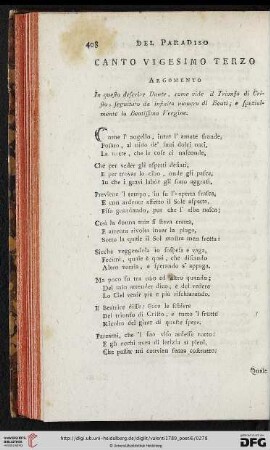 408
DEL PARADISO
CANTO VIGESIMO TERZO
ARGOMENTO
In questo descrive Dante, come vide il Trionfo di Cri-
sto, seguitato da infinito numero di Beati; e spezial-
mente la Beatissima Vergine.
Come l' augello, intra l' amate fronde,
Posato al nido de' suoi dolci nati,
La notte, che le cose ci nasconde,
Che per veder gli aspetti desiati,
E per trovar lo cibo, onde gli pasca,
In che i gravi labor gli sono aggrati,
Previene 'l tempo, in su l' aperta frasca,
E con ardente affetto il Sole aspetta,
Fiso guardando, pur che l' alba nasca;
Così la donna mia si stava eretta,
E attenta rivolta inver la plaga,
Sotto la quale il Sol mostra men fretta:
Sicchè veggendola io sospesa e vaga,
Fecimi, quale è quei, che disiando
Altro vorria, e sperando s' appaga.
Ma poco fu tra uno ed altro quando;
Del mio attender dico, e del vedere
Lo Ciel venir più e più rischiarando.
E Beatrice disse: Ecco le schiere
Del trionfo di Cristo, e tutto 'l frutto
Ricolto del girar di queste spere.
Pareami, che 'l suo viso ardesse tutto:
E gli occhi avea di letizia sì pieni,
Che passar mi convien senza costrutto.
Quale
http://digi.ub.uni-heidelberg.de/diglit/